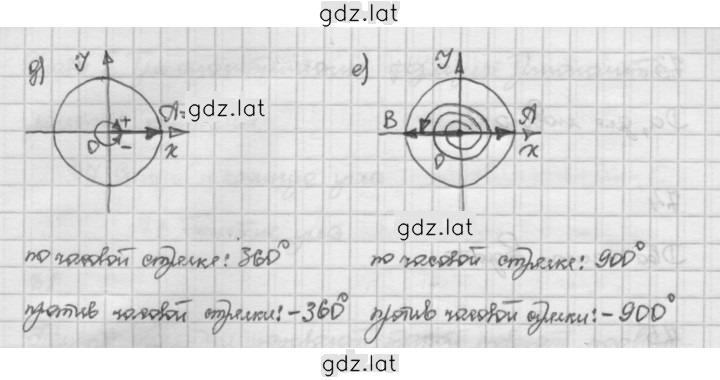 gdz.lat
д) У е) У
А gdz.lat В А
+
О - х О х
gdz.lat
по часовой стрелке: 360° по часовой стрелке: 900°
против часовой стрелки: -360° против часовой стрелки: -900°
gdz.lat